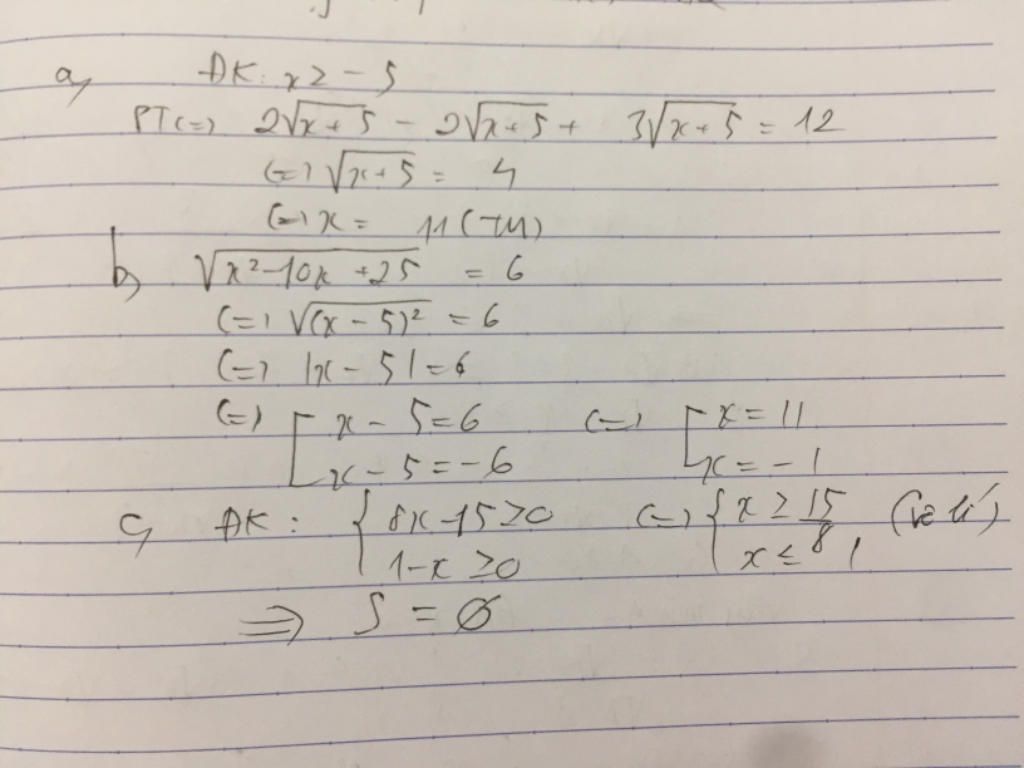 a, ĐK: x ≥ -5
PT (=) 2√(x+5) - 2√(x+5) + 3√(x+5) = 12
(=) √(x+5) = 4
(=) x = 11 (TM)
b, √(x²-10x+25) = 6
(=) √((x-5)²) = 6
(=) |x-5| = 6
(=) [ x - 5 = 6 (=) [ x = 11
x - 5 = -6 x = -1
c, ĐK: { 8x - 15 ≥ 0 (=) { x ≥ 15/8 (vô lí)
1 - x ≥ 0 x ≤ 1
=> S = ∅